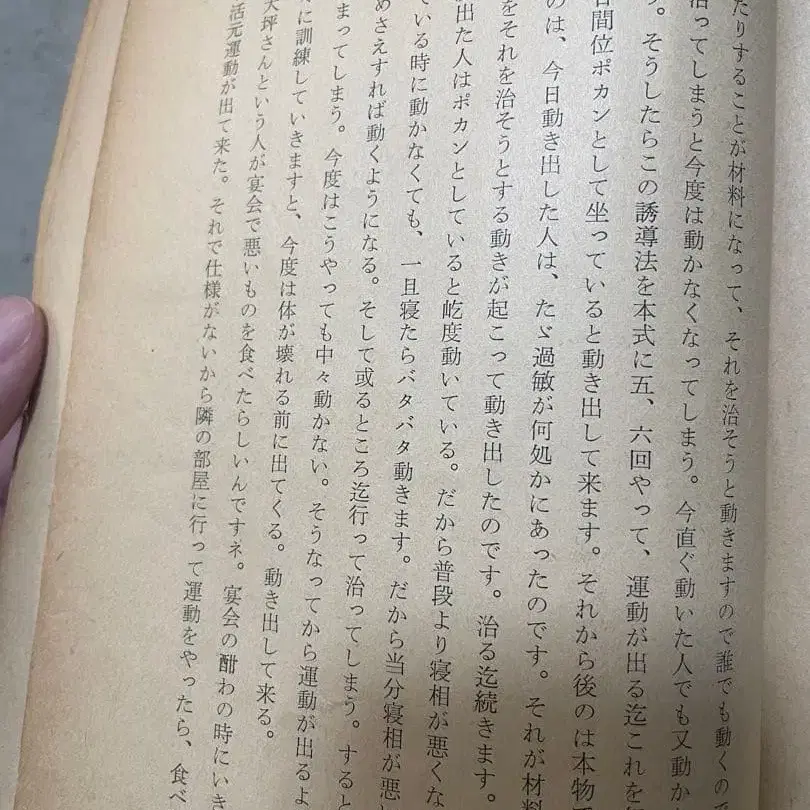 たりすることが材料になって、それを治そうと動きますので誰でも動くので
治ってしまうと今度は動かなくなってしまう。今直ぐ動いた人でも又動か
う。そうしたらこの誘導法を本式に五、六回やって、運動が出る迄これを
間位ポカンとして坐っていると動き出して来ます。それから後のは本物
のは、今日動き出した人は、たゞ過敏が何処かにあったのです。それが材料
をそれを治そうとする動きが起こって動き出したのです。治る迄続きます。
出た人はポカンとしていると屹度動いている。だから普段より寝相が悪くな
ている時に動かなくても、一旦寝たらバタバタ動きます。だから当分寝相が悪
めさえすれば動くようになる。そして或るところ迄行って治ってしまう。すると
まってしまう。今度はこうやっても中々動かない。そうなってから運動が出るよ
に訓練していきますと、今度は体が壊れる前に出てくる。動き出して来る。
大坪さんという人が宴会で悪いものを食べたらしいんですネ。宴会の酣わの時にいき
活元運動が出て来た。それで仕様がないから隣の部屋に行って運動をやったら、食べ